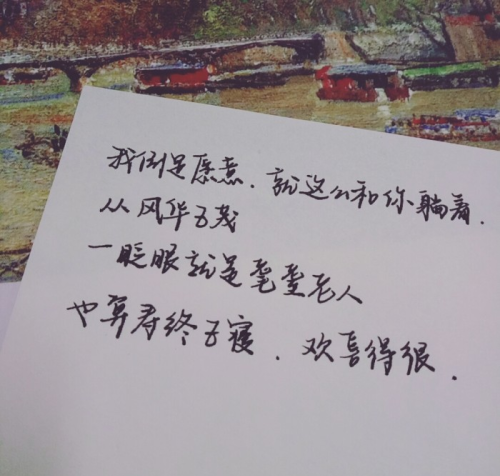 我倒是愿意.就这么和你躺着.
从风华正茂
一眨眼就是耄耋老人
也算寿终正寝.欢喜得很.